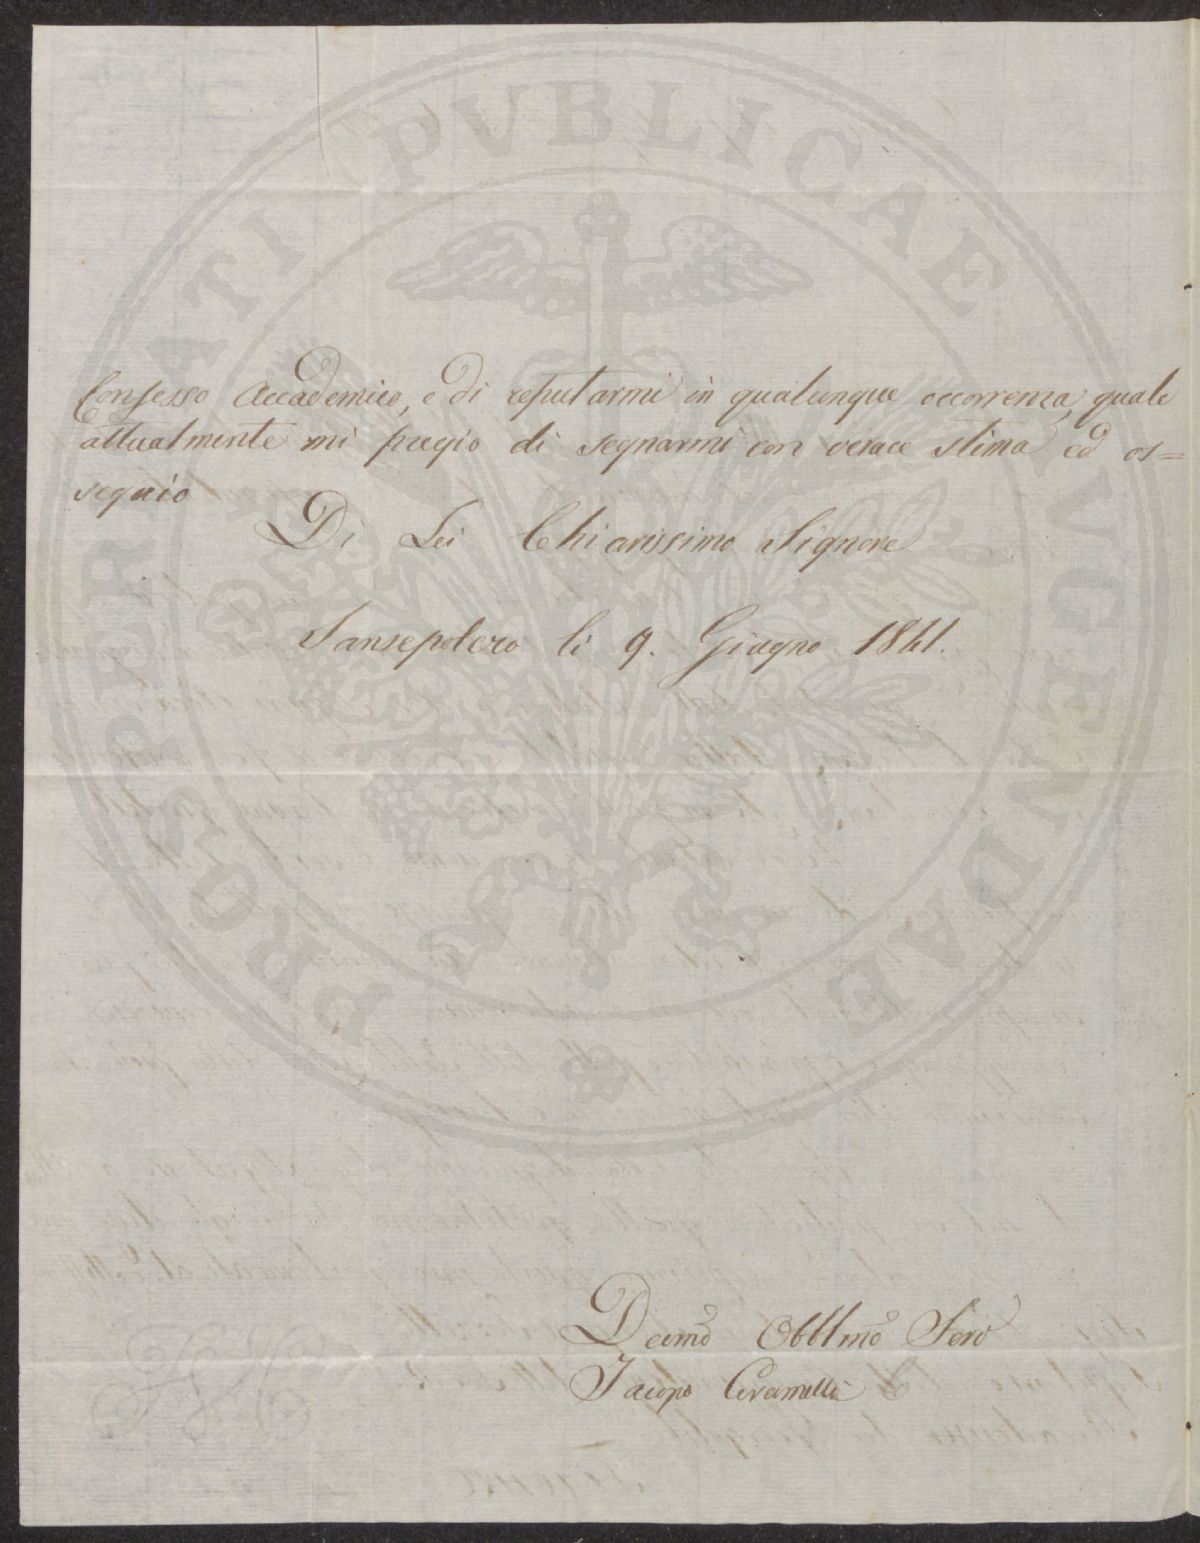 Consesso Accademico, e di reputarmi in qualunque occorrenza, quale
attualmente mi pregio di segnarmi con verace stima ed os=
sequio
Di Lei Chiarissimo Signore
Sansepolcro li 9. Giugno 1841.
Devmo Obblmo Serv
Jacopo Ceramelli
PROSPERITATI PVBLICAE AVGENDAE